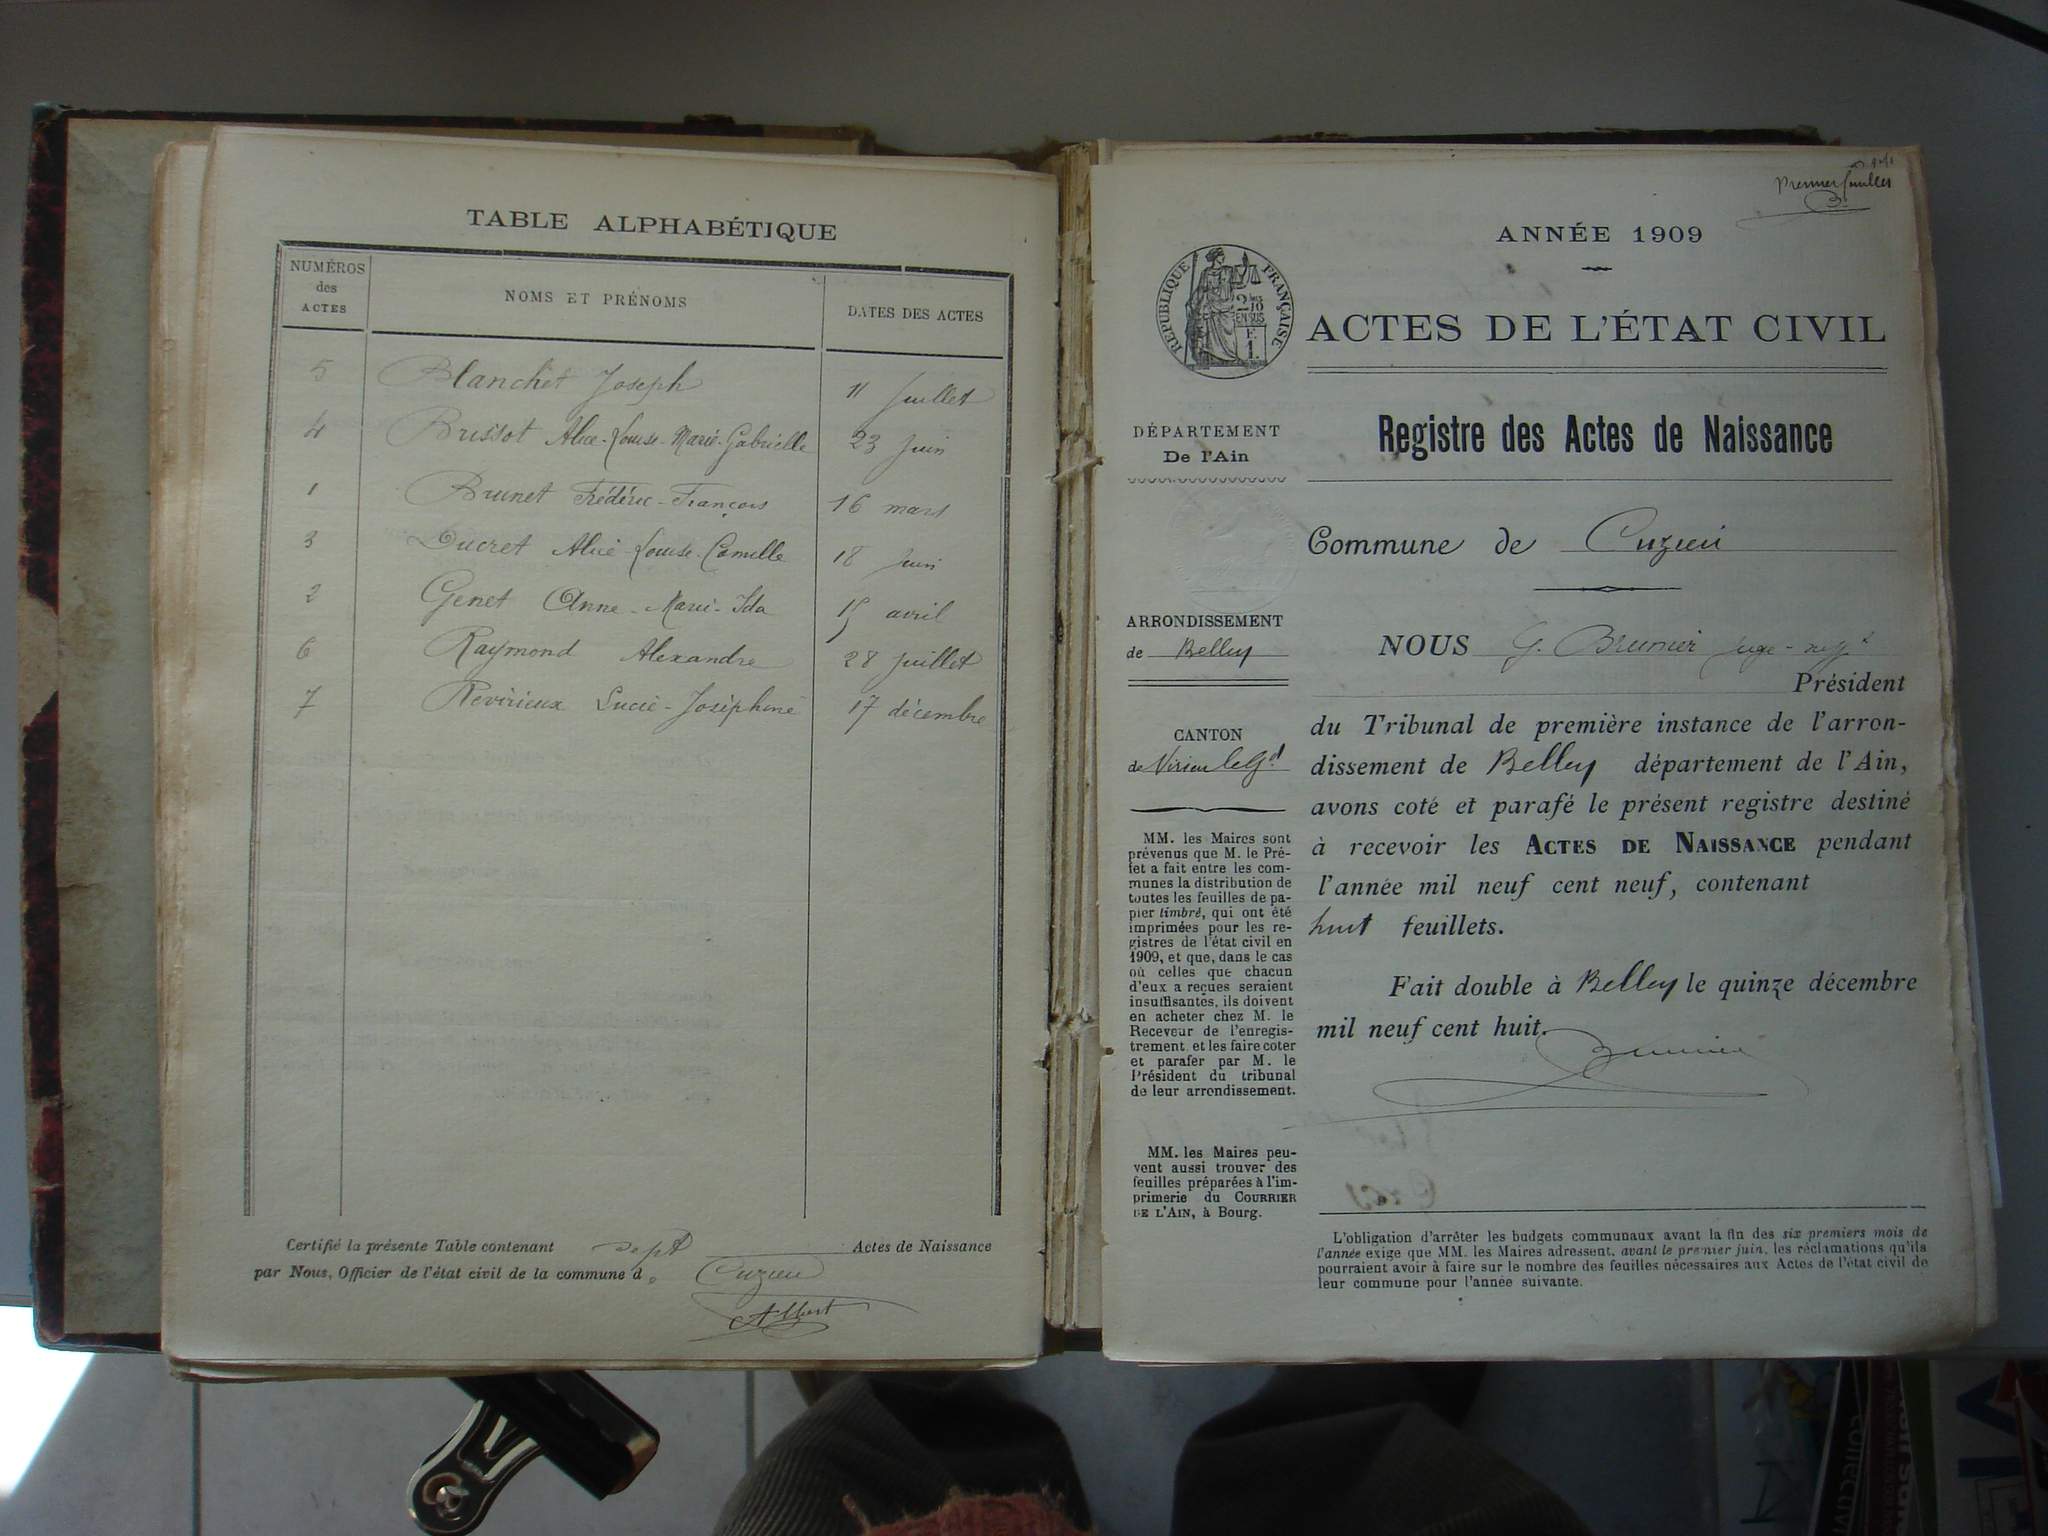 TABLE ALPHABÉTIQUE
NUMÉROS des ACTES
NOMS ET PRÉNOMS
DATES DES ACTES
5 Blanchet Joseph 11 juillet
4 Brussot Alice-Louise-Marie-Gabrielle 23 juin
1 Brunet Frédéric-François 16 mars
3 Ducret Alice-Louise-Camille 18 juin
2 Genet Anne-Marie-Ida 15 avril
6 Raymond Alexandre 28 juillet
7 Revirieux Lucie-Joséphine 17 décembre
Certifié la présente Table contenant sept Actes de Naissance
par Nous, Officier de l'état civil de la commune de Cuzieu
Albert
Premier feuillet
ANNÉE 1909
RÉPUBLIQUE FRANÇAISE
2/10
EN SUS
F.
1.
ACTES DE L'ÉTAT CIVIL
DÉPARTEMENT
De l'Ain
Registre des Actes de Naissance
Commune de Cuzieu
ARRONDISSEMENT
de Belley
CANTON
de Virieu le Gd
MM. les Maires sont
prévenus que M. le Pré-
fet a fait entre les com-
munes la distribution de
toutes les feuilles de pa-
pier timbré, qui ont été
imprimées pour les re-
gistres de l'état civil en
1909, et que, dans le cas
où celles que chacun
d'eux a reçues seraient
insuffisantes, ils doivent
en acheter chez M. le
Receveur de l'enregis-
trement et les faire coter
et parafer par M. le
Président du tribunal
de leur arrondissement.
MM. les Maires peu-
vent aussi trouver des
feuilles préparées à l'im-
primerie du COURRIER
DE L'AIN, à Bourg.
NOUS G. Brunier juge-
Président
du Tribunal de première instance de l'arron-
dissement de Belley département de l'Ain,
avons coté et parafé le présent registre destiné
à recevoir les ACTES DE NAISSANCE pendant
l'année mil neuf cent neuf, contenant
huit feuillets.
Fait double à Belley le quinze décembre
mil neuf cent huit.
Brunier
L'obligation d'arrêter les budgets communaux avant la fin des six premiers mois de
l'année exige que MM. les Maires adressent, avant le premier juin, les réclamations qu'ils
pourraient avoir à faire sur le nombre des feuilles nécessaires aux Actes de l'état civil de
leur commune pour l'année suivante.